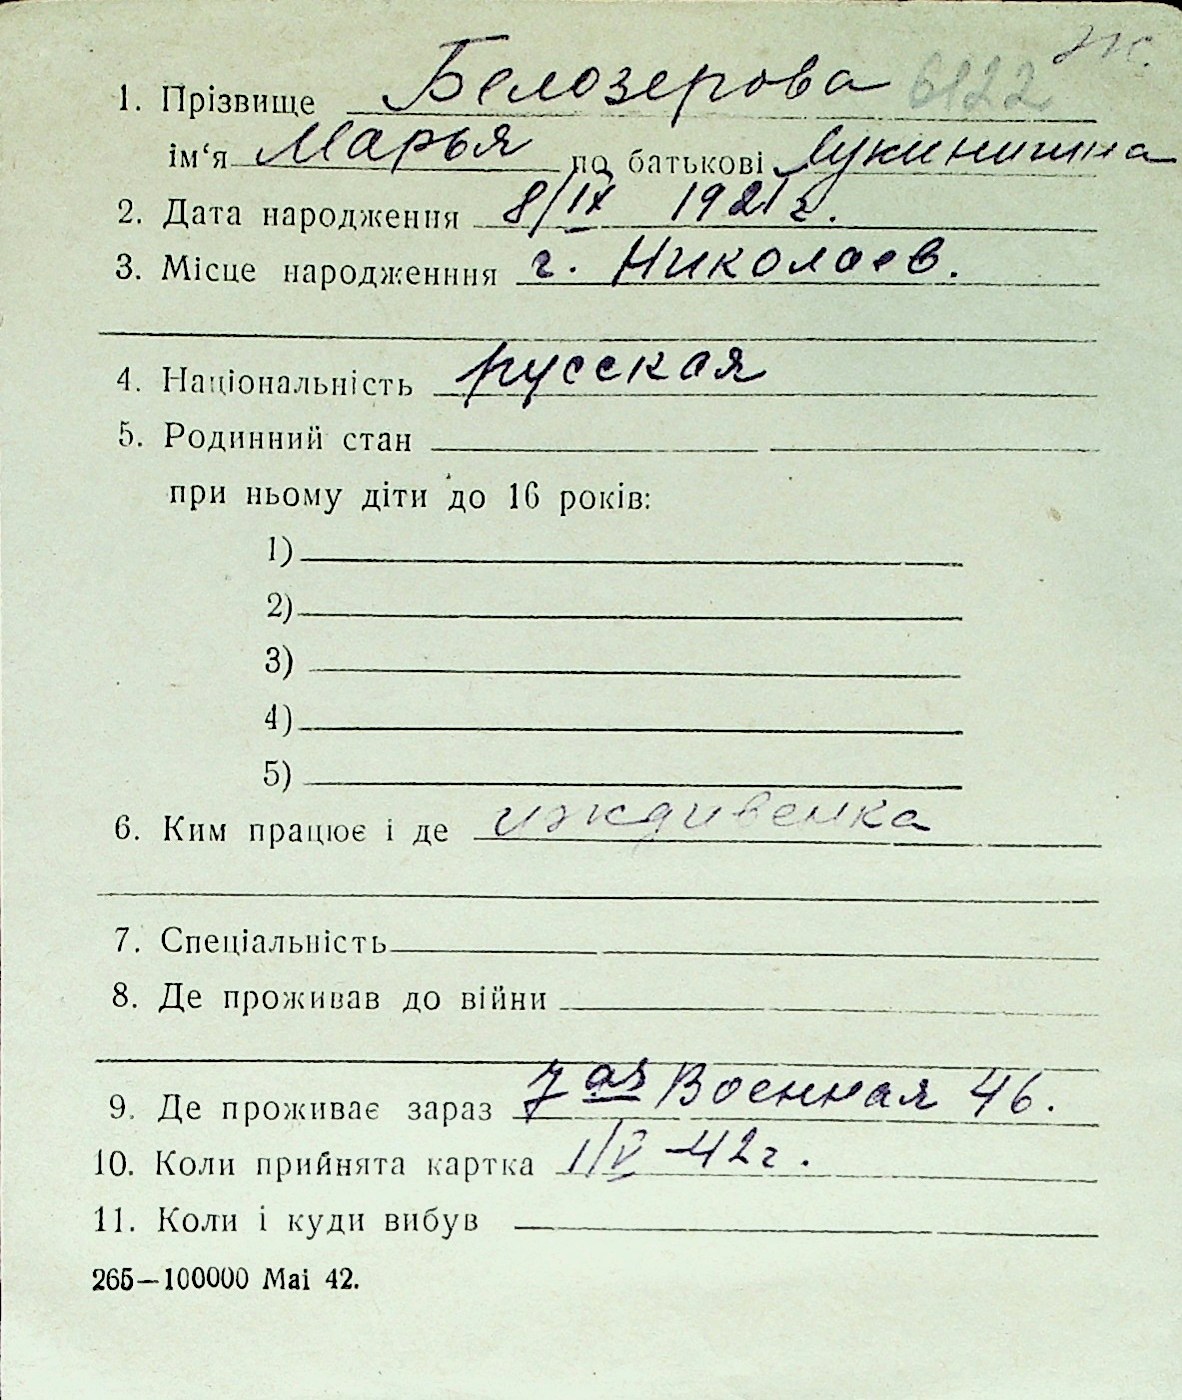 ж.
1. Прізвище Белозерова 6122
ім‘я Марья по батькові Лукинишна
2. Дата народження 8/IX 1921 г.
3. Місце народженння г. Николаев.
4. Національність русская
5. Родинний стан
при ньому діти до 16 років:
1)
2)
3)
4)
5)
6. Ким працює і де иждивенка
7. Спеціальність
8. Де проживав до війни
9. Де проживає зараз 7 ая Военная 46.
10. Коли прийнята картка 1/V-42 г.
11. Коли і куди вибув
265—100000 Mai 42.